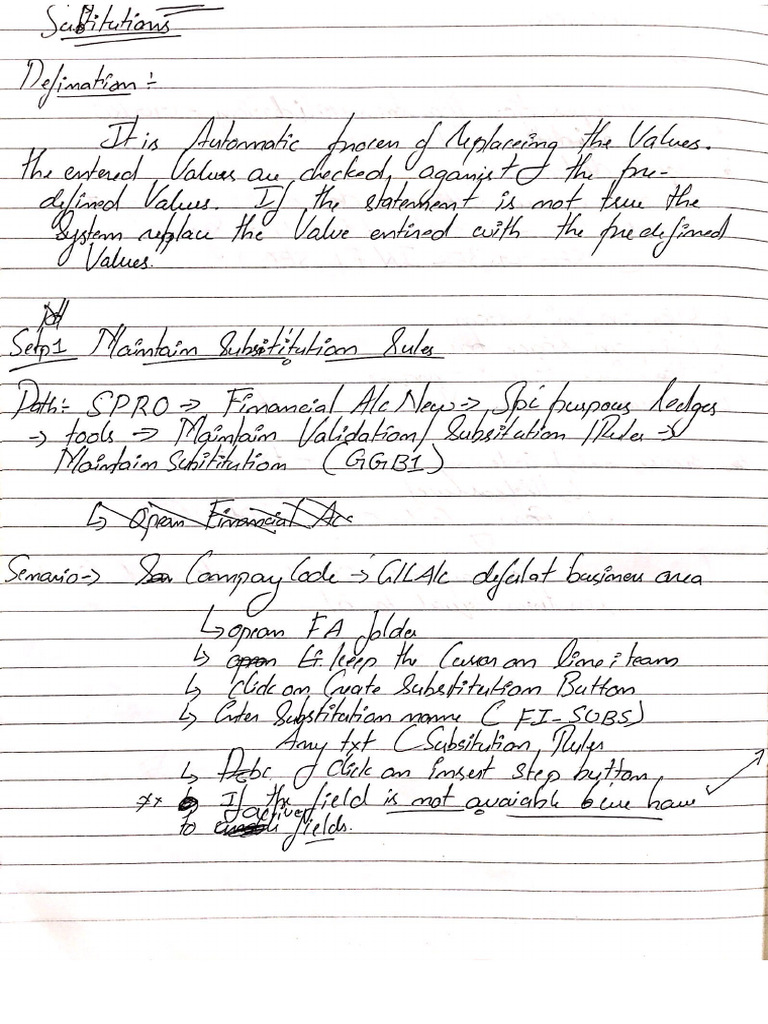 Substitutions
Defination :-
It is Automatic process of replaceing the Values.
the entered Values are checked aganist the pre-
defined Values. If the statement is not true the
System replace the Value entired with the predefined
Values.
Setp1 Maintain Subsititution Rules
Path:- SPRO → Financial A/c New →, Spi purpous ledger
→ tools → Maintain Validation/ Subsitution /Rules →
Maintain Subititution (GGB1)
↳ Opean Financial A/c
Senario → Company Code → G/L A/c defulat business area
↳ opean FA folder
↳ keep the Curser on line iteam
↳ Click on Create Substitution Button
↳ Enter Substitution name ( FI-SUBS)
Any txt (Subsitution, Rules
↳ click on insert step button,
** If the field is not avaiable been have
to actived fields.